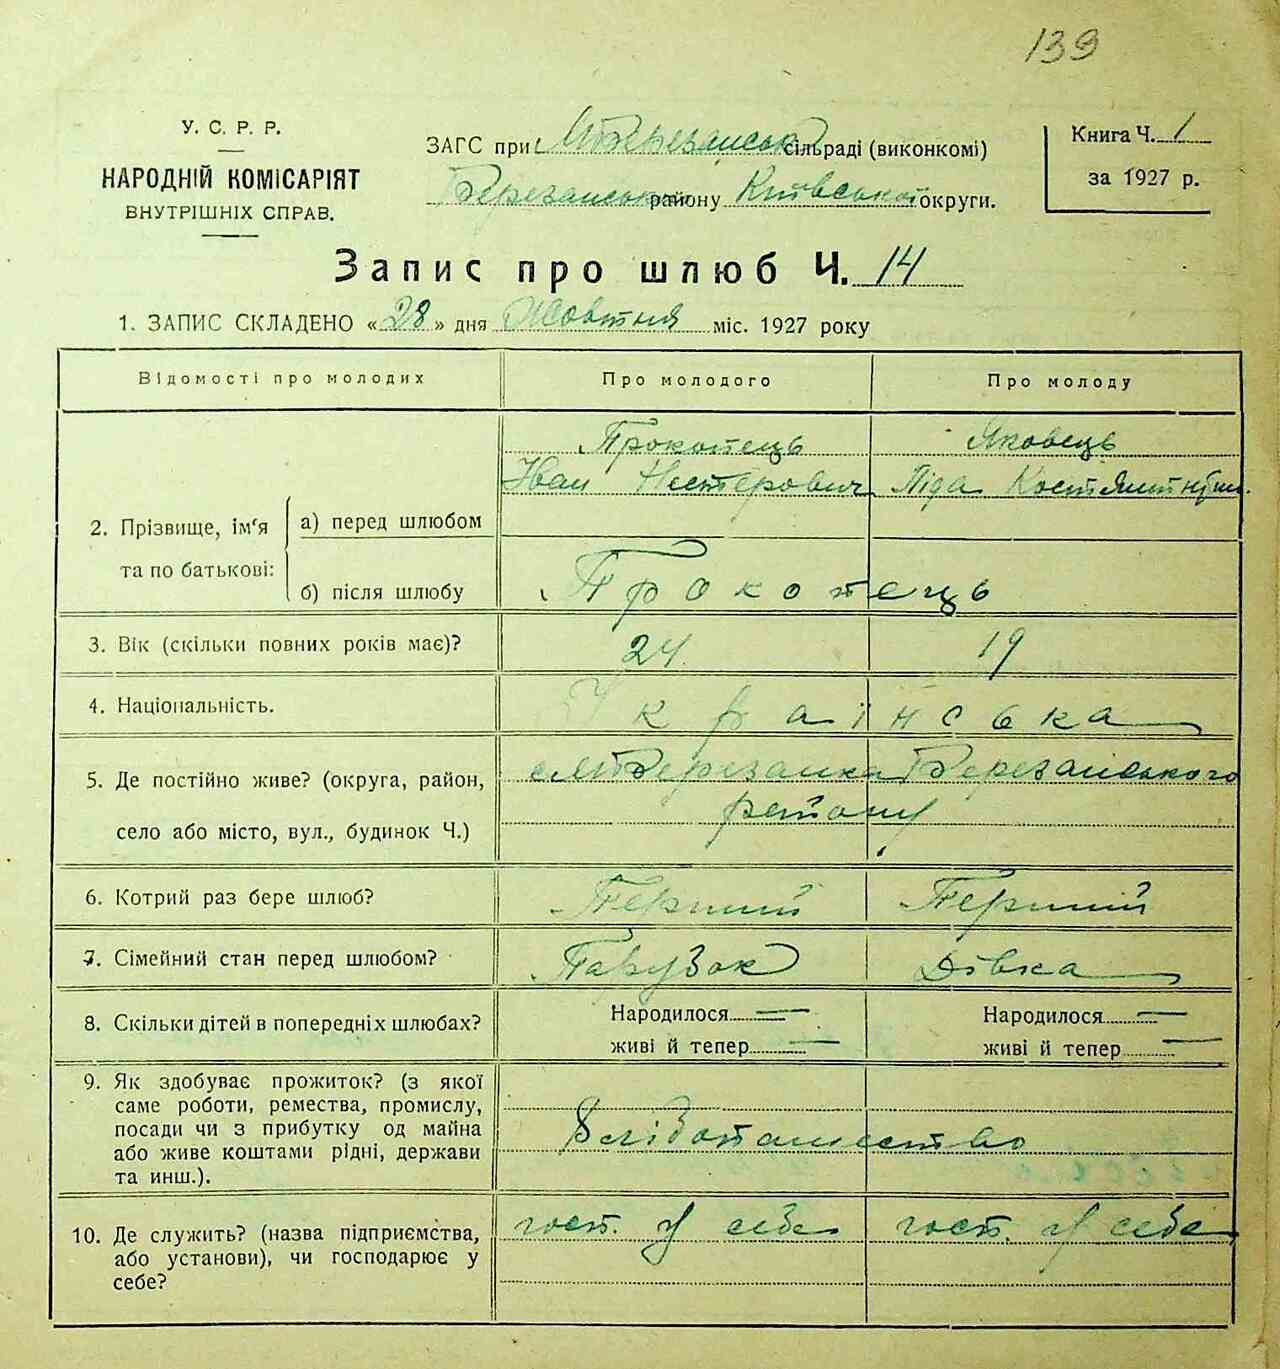 139
У. С. Р. Р.
НАРОДНІЙ КОМІСАРІЯТ
ВНУТРІШНІХ СПРАВ.
ЗАГС при МБерезанськ сільраді (виконкомі)
Березанського району Київської округи.
Книга Ч. 1
за 1927 р.
Запис про шлюб Ч. 14
1. ЗАПИС СКЛАДЕНО «28» дня Жовтня міс. 1927 року
Відомості про молодих
Про молодого
Про молоду
2. Прізвище, ім'я та по батькові:
а) перед шлюбом
Прокопець
Іван Нестерович
Яковець
Ліда Костянтнівн.
б) після шлюбу
Прокопець
3. Вік (скільки повних років має)?
24
19
4. Національність.
Українська
5. Де постійно живе? (округа, район,
село або місто, вул., будинок Ч.)
МБерезанка Березанського
району
6. Котрий раз бере шлюб?
Перший
Перший
7. Сімейний стан перед шлюбом?
Парубок
Дівка
8. Скільки дітей в попередніх шлюбах?
Народилося —
живі й тепер —
Народилося —
живі й тепер —
9. Як здобуває прожиток? (з якої
саме роботи, ремества, промислу,
посади чи з прибутку од майна
або живе коштами рідні, держави
та инш.).
10. Де служить? (назва підприємства,
або установи), чи господарює у
себе?
гост. у себе
гост. у себе